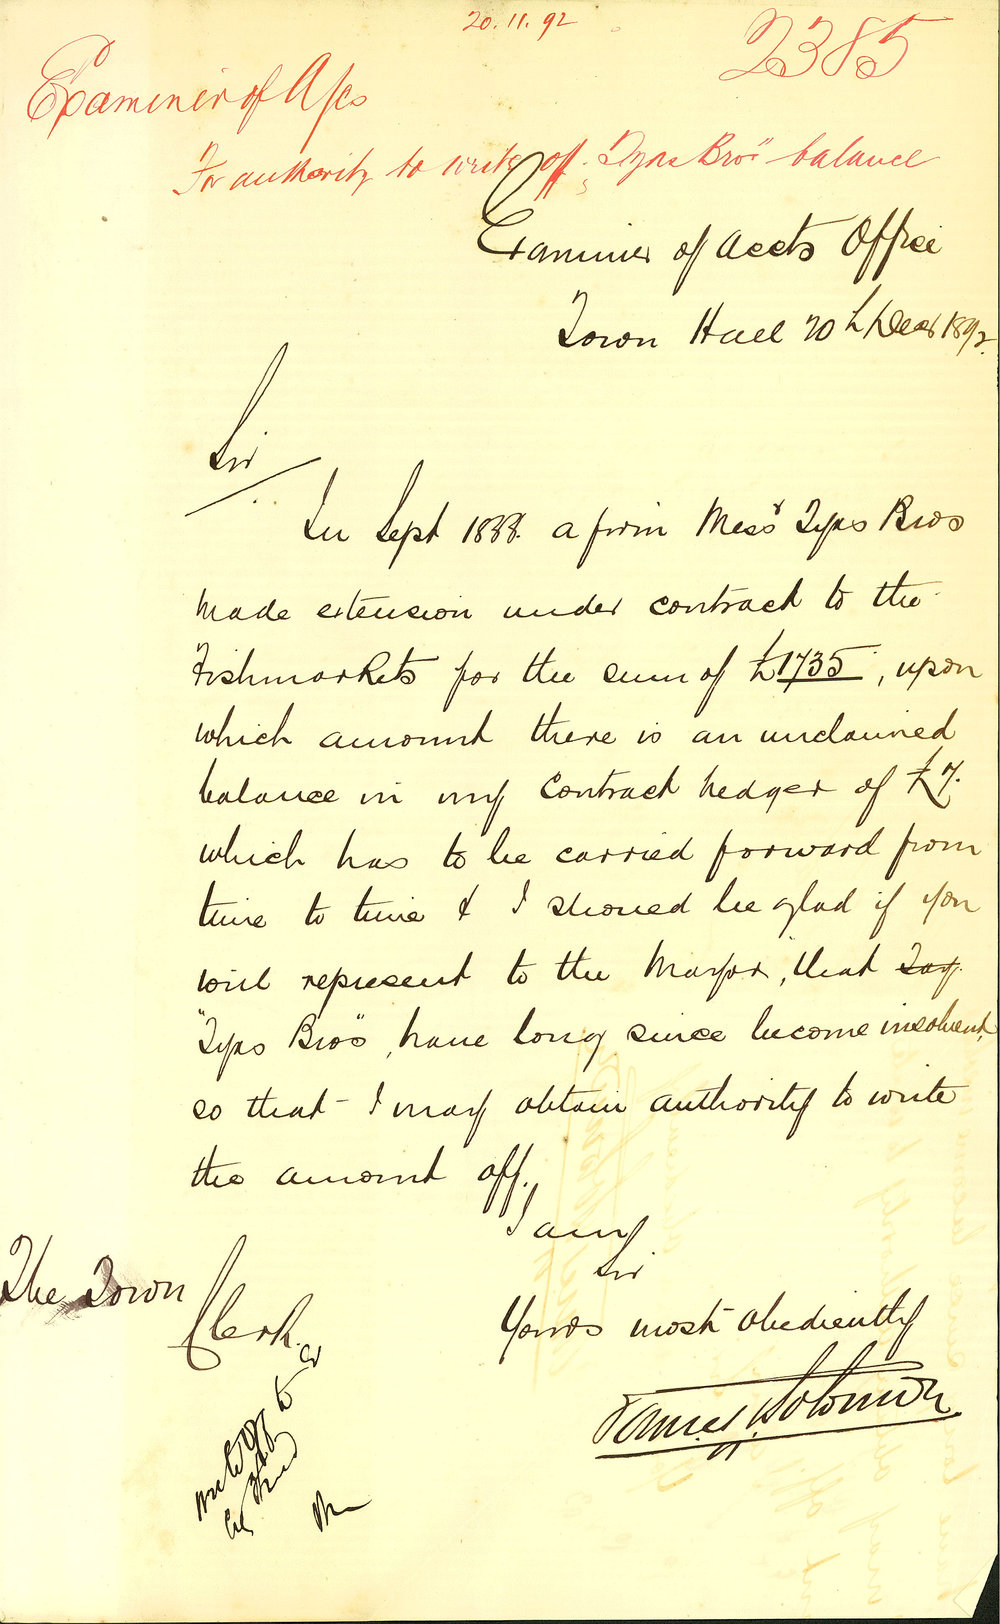 20.11.92
2385
Examiner of A/cs
For authority to write off "Tyas Bros" balance
Examiner of Accts Office
Town Hall 20th Decr 1892.
Sir
In Sept 1888. a firm Messrs Tyas Bros
made extension under contract to the
Fishmarkets for the sum of £1735, upon
which amount there is an unclaimed
balance in my Contract Ledger of £7.
which has to be carried forward from
time to time & I should be glad if you
will represent to the Mayor, that Tay.
"Tyas Bros", have long since become insolvent,
so that I may obtain authority to write
the amount off.
I am
Sir
Yours most obediently
James Solomon
The Town
Clerk.
write off to